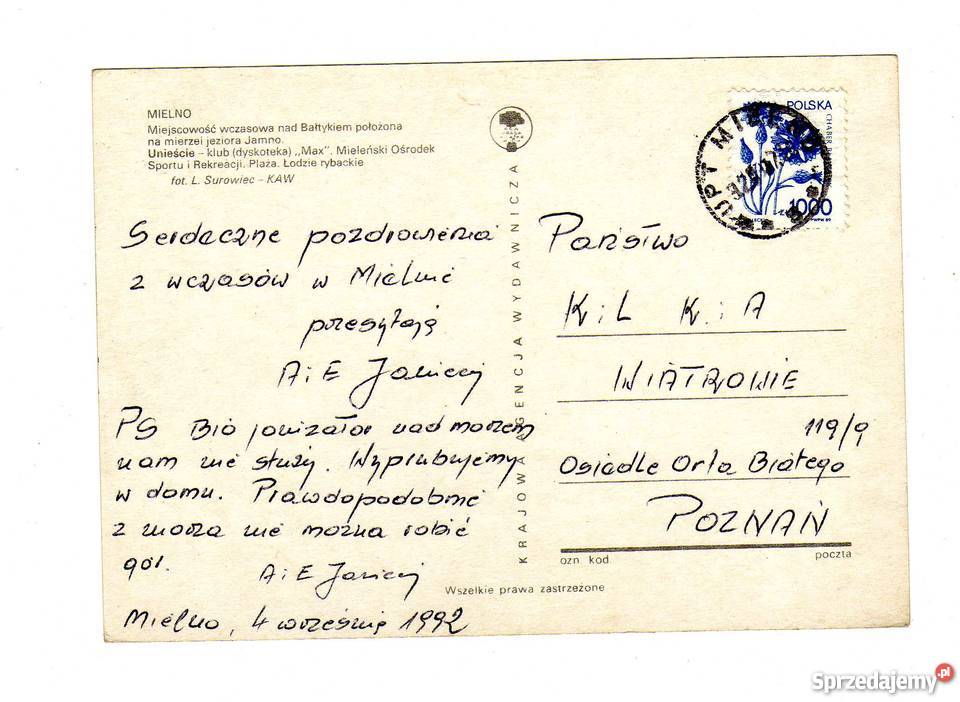 MIELNO
Miejscowość wczasowa nad Bałtykiem położona
na mierzei jeziora Jamno.
Unieście – klub (dyskoteka) „Max". Mieleński Ośrodek
Sportu i Rekreacji. Plaża. Łodzie rybackie
fot. L. Surowiec – KAW
Serdeczne pozdrowienia
z wczasów w Mielnie
przesyłają
A i E
PS Bio jonizator nad morzem
nam nie służy. Wypróbujemy
w domu. Prawdopodobnie
z morza nie można robić
gór.
A i E
Mielno, 4 wrzesień 1992
KRAJOWA AGENCJA WYDAWNICZA
Wszelkie prawa zastrzeżone
POLSKA
CHABER
1000
UPT MIELNO
Państwo
K i L K i A
WIATROWIE
119/9
Osiedle Orła Białego
POZNAŃ
ozn kod.
poczta
Sprzedajemy.pl